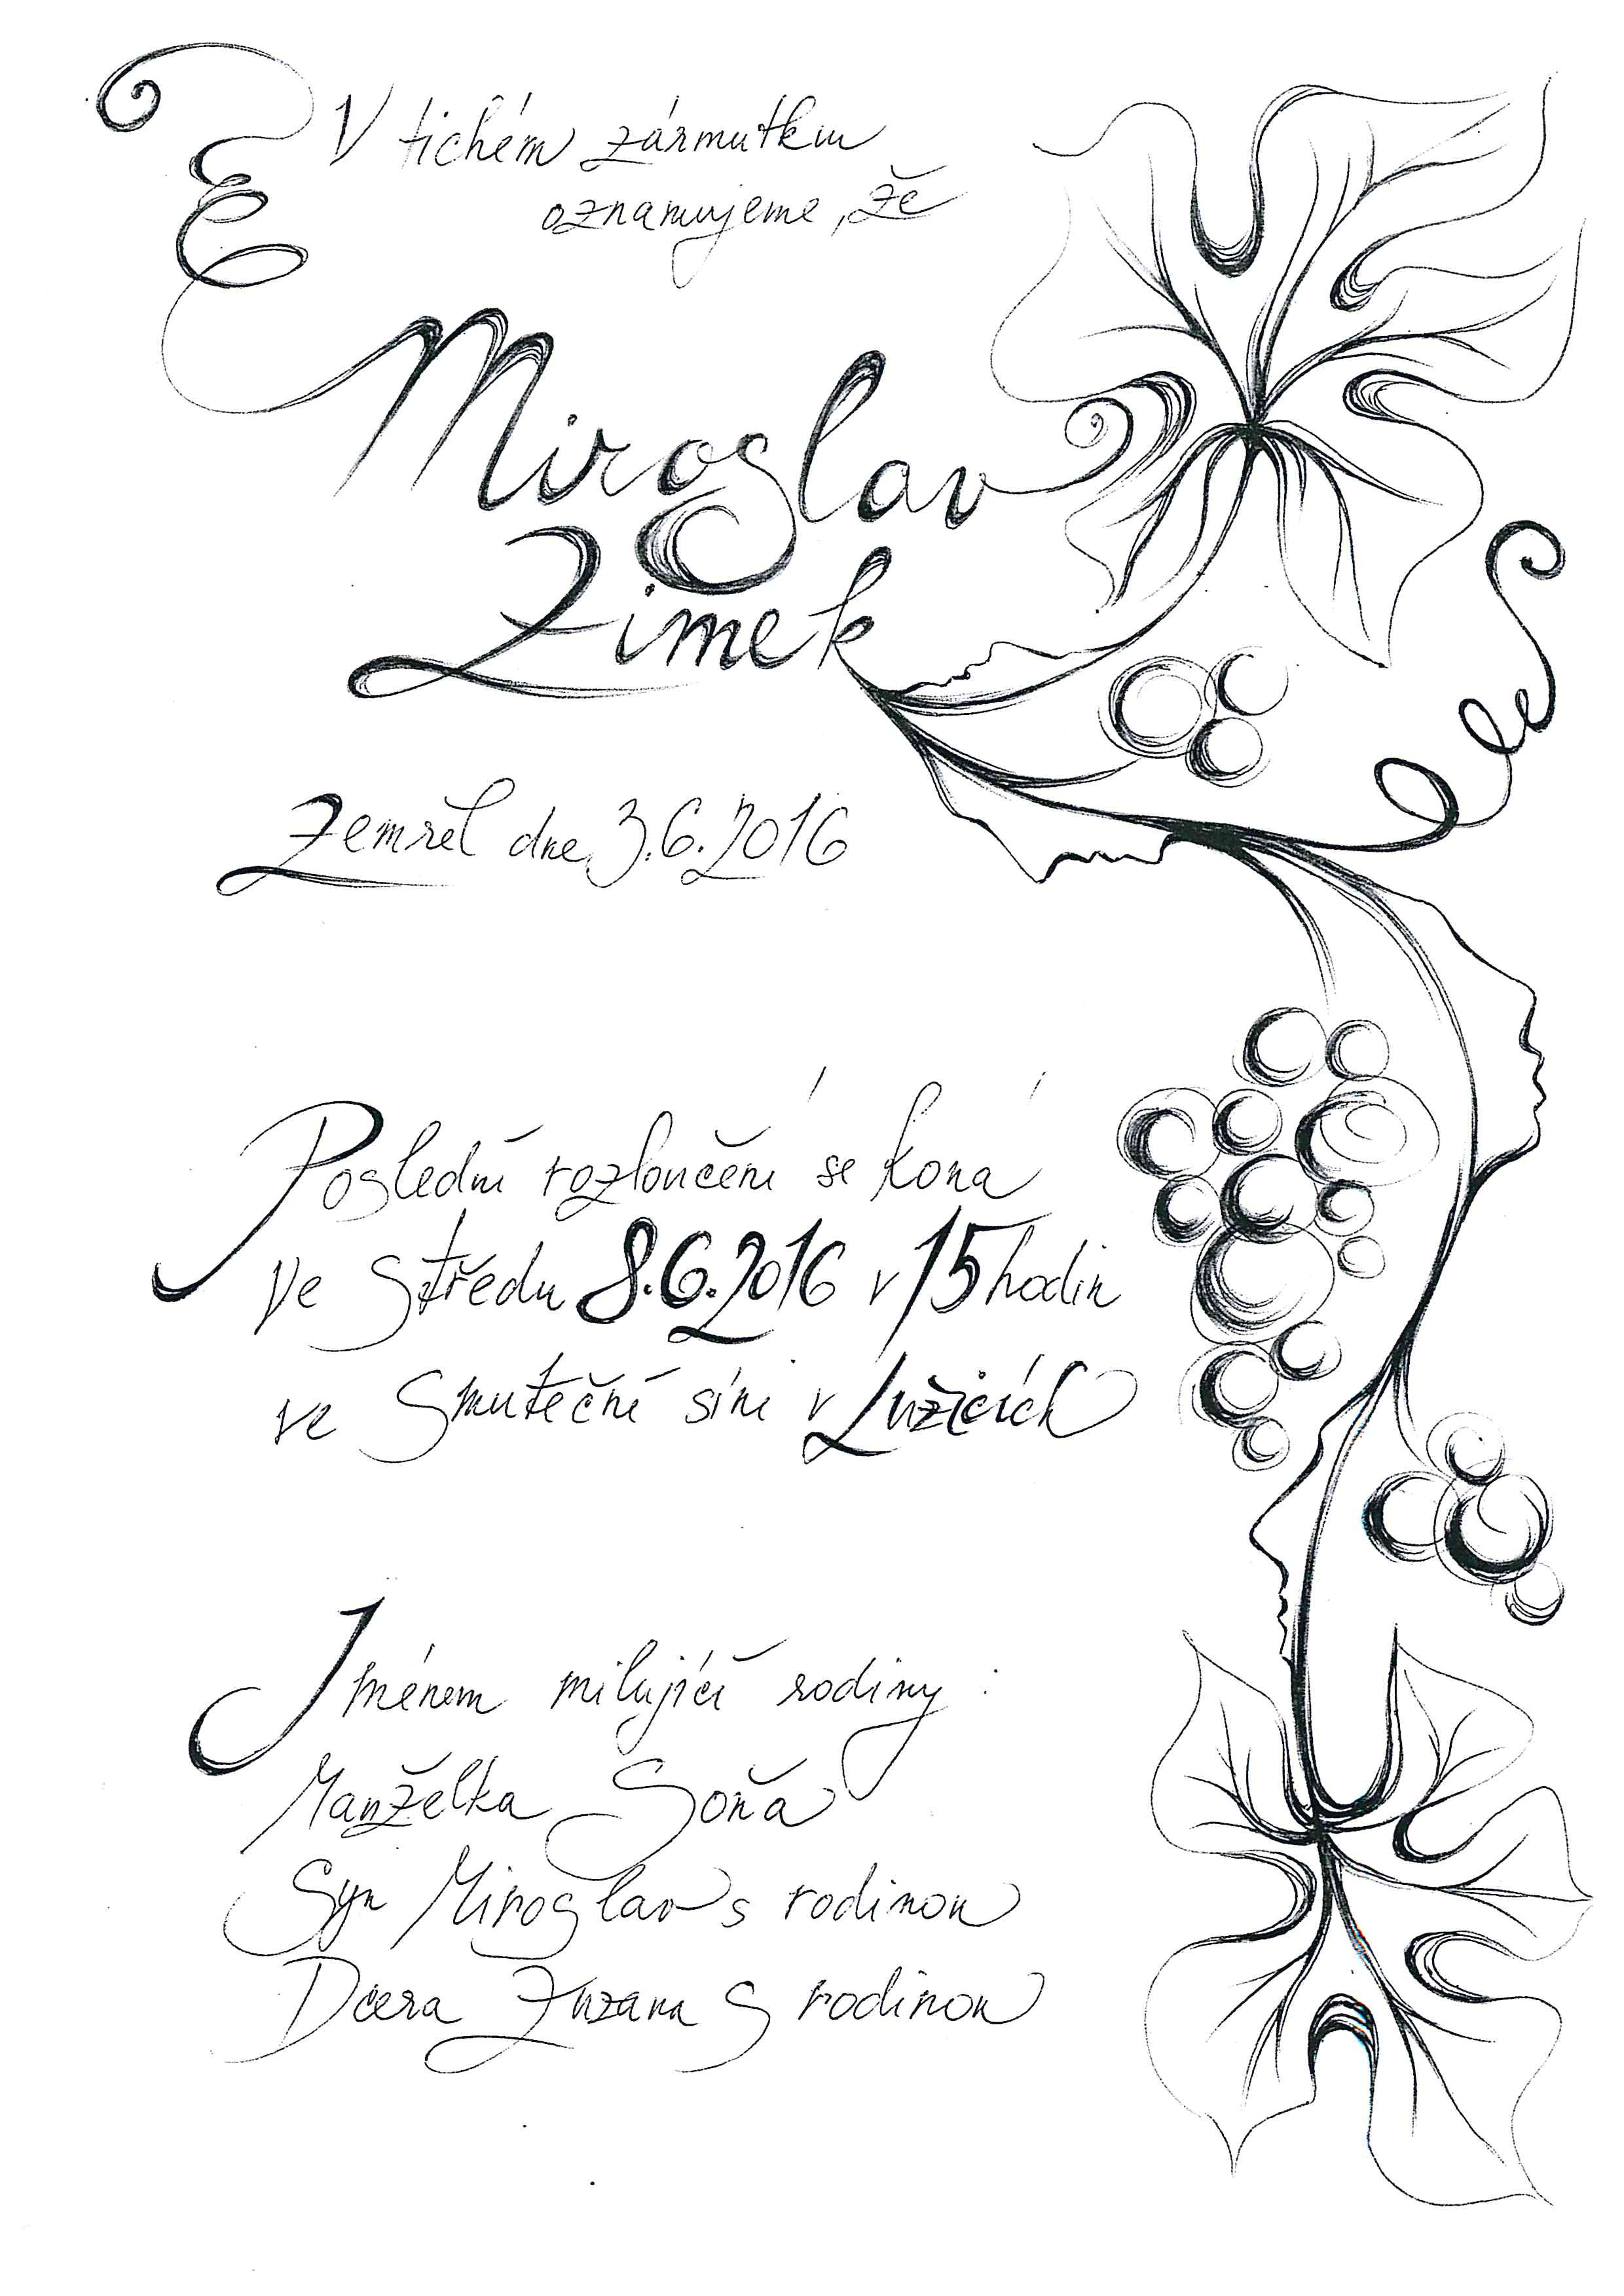 V tichém zármutku
oznamujeme, že
Miroslav
Zimek
Zemřel dne 3.6.2016
Poslední rozloučení se koná
ve Středu 8.6.2016 v 15 hodin
ve Smuteční síni v Lužicích
Jménem milující rodiny:
Manželka Soňa
Syn Miroslav s rodinou
Dcera Zuzana s rodinou